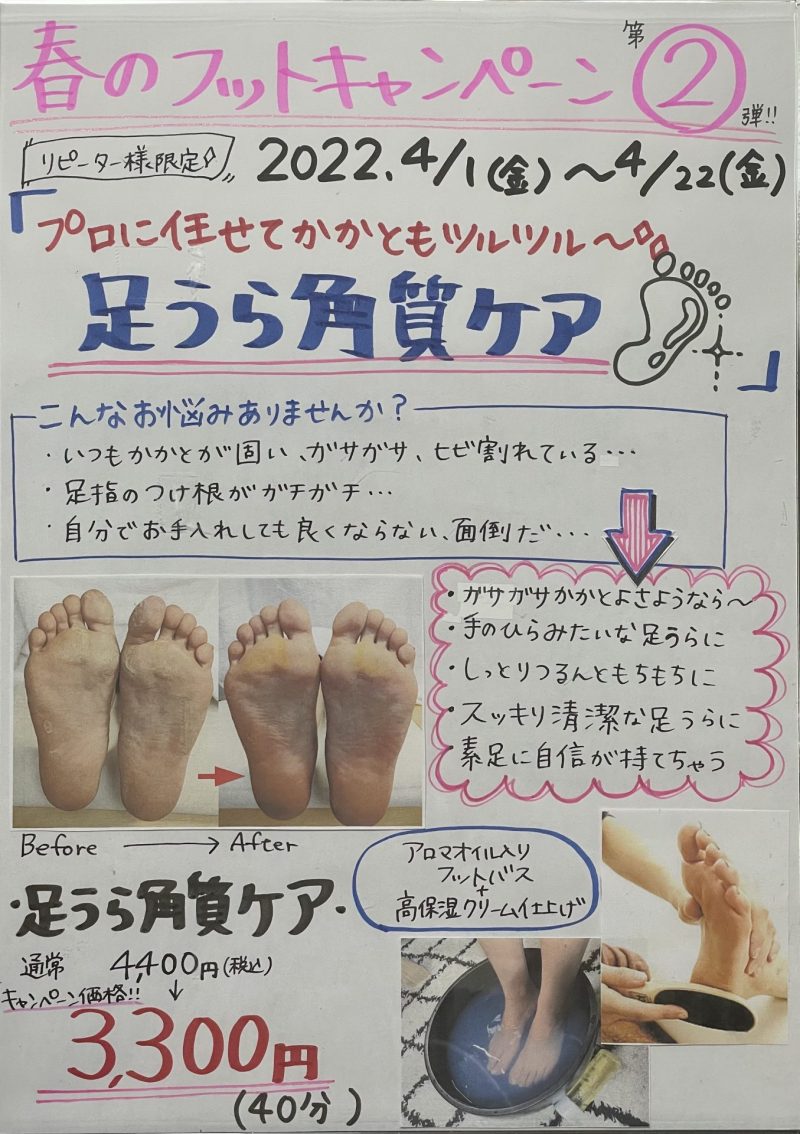 春のフットキャンペーン 第②弾!!
リピーター様限定 2022.4/1(金)～4/22(金)
「プロに任せてかかともツルツル～
足うら角質ケア」
こんなお悩みありませんか?
・いつもかかとが固い、ガサガサ、ヒビ割れている…
・足指のつけ根がガチガチ…
・自分でお手入れしても良くならない、面倒だ…
・ガサガサかかとよさようなら～
・手のひらみたいな足うらに
・しっとりつるんともちもちに
・スッキリ清潔な足うらに
・素足に自信が持てちゃう
Before → After
アロマオイル入り
フットバス
+
高保湿クリーム仕上げ
・足うら角質ケア・
通常 4,400円(税込)
キャンペーン価格!! ↓
3,300円
(40分)